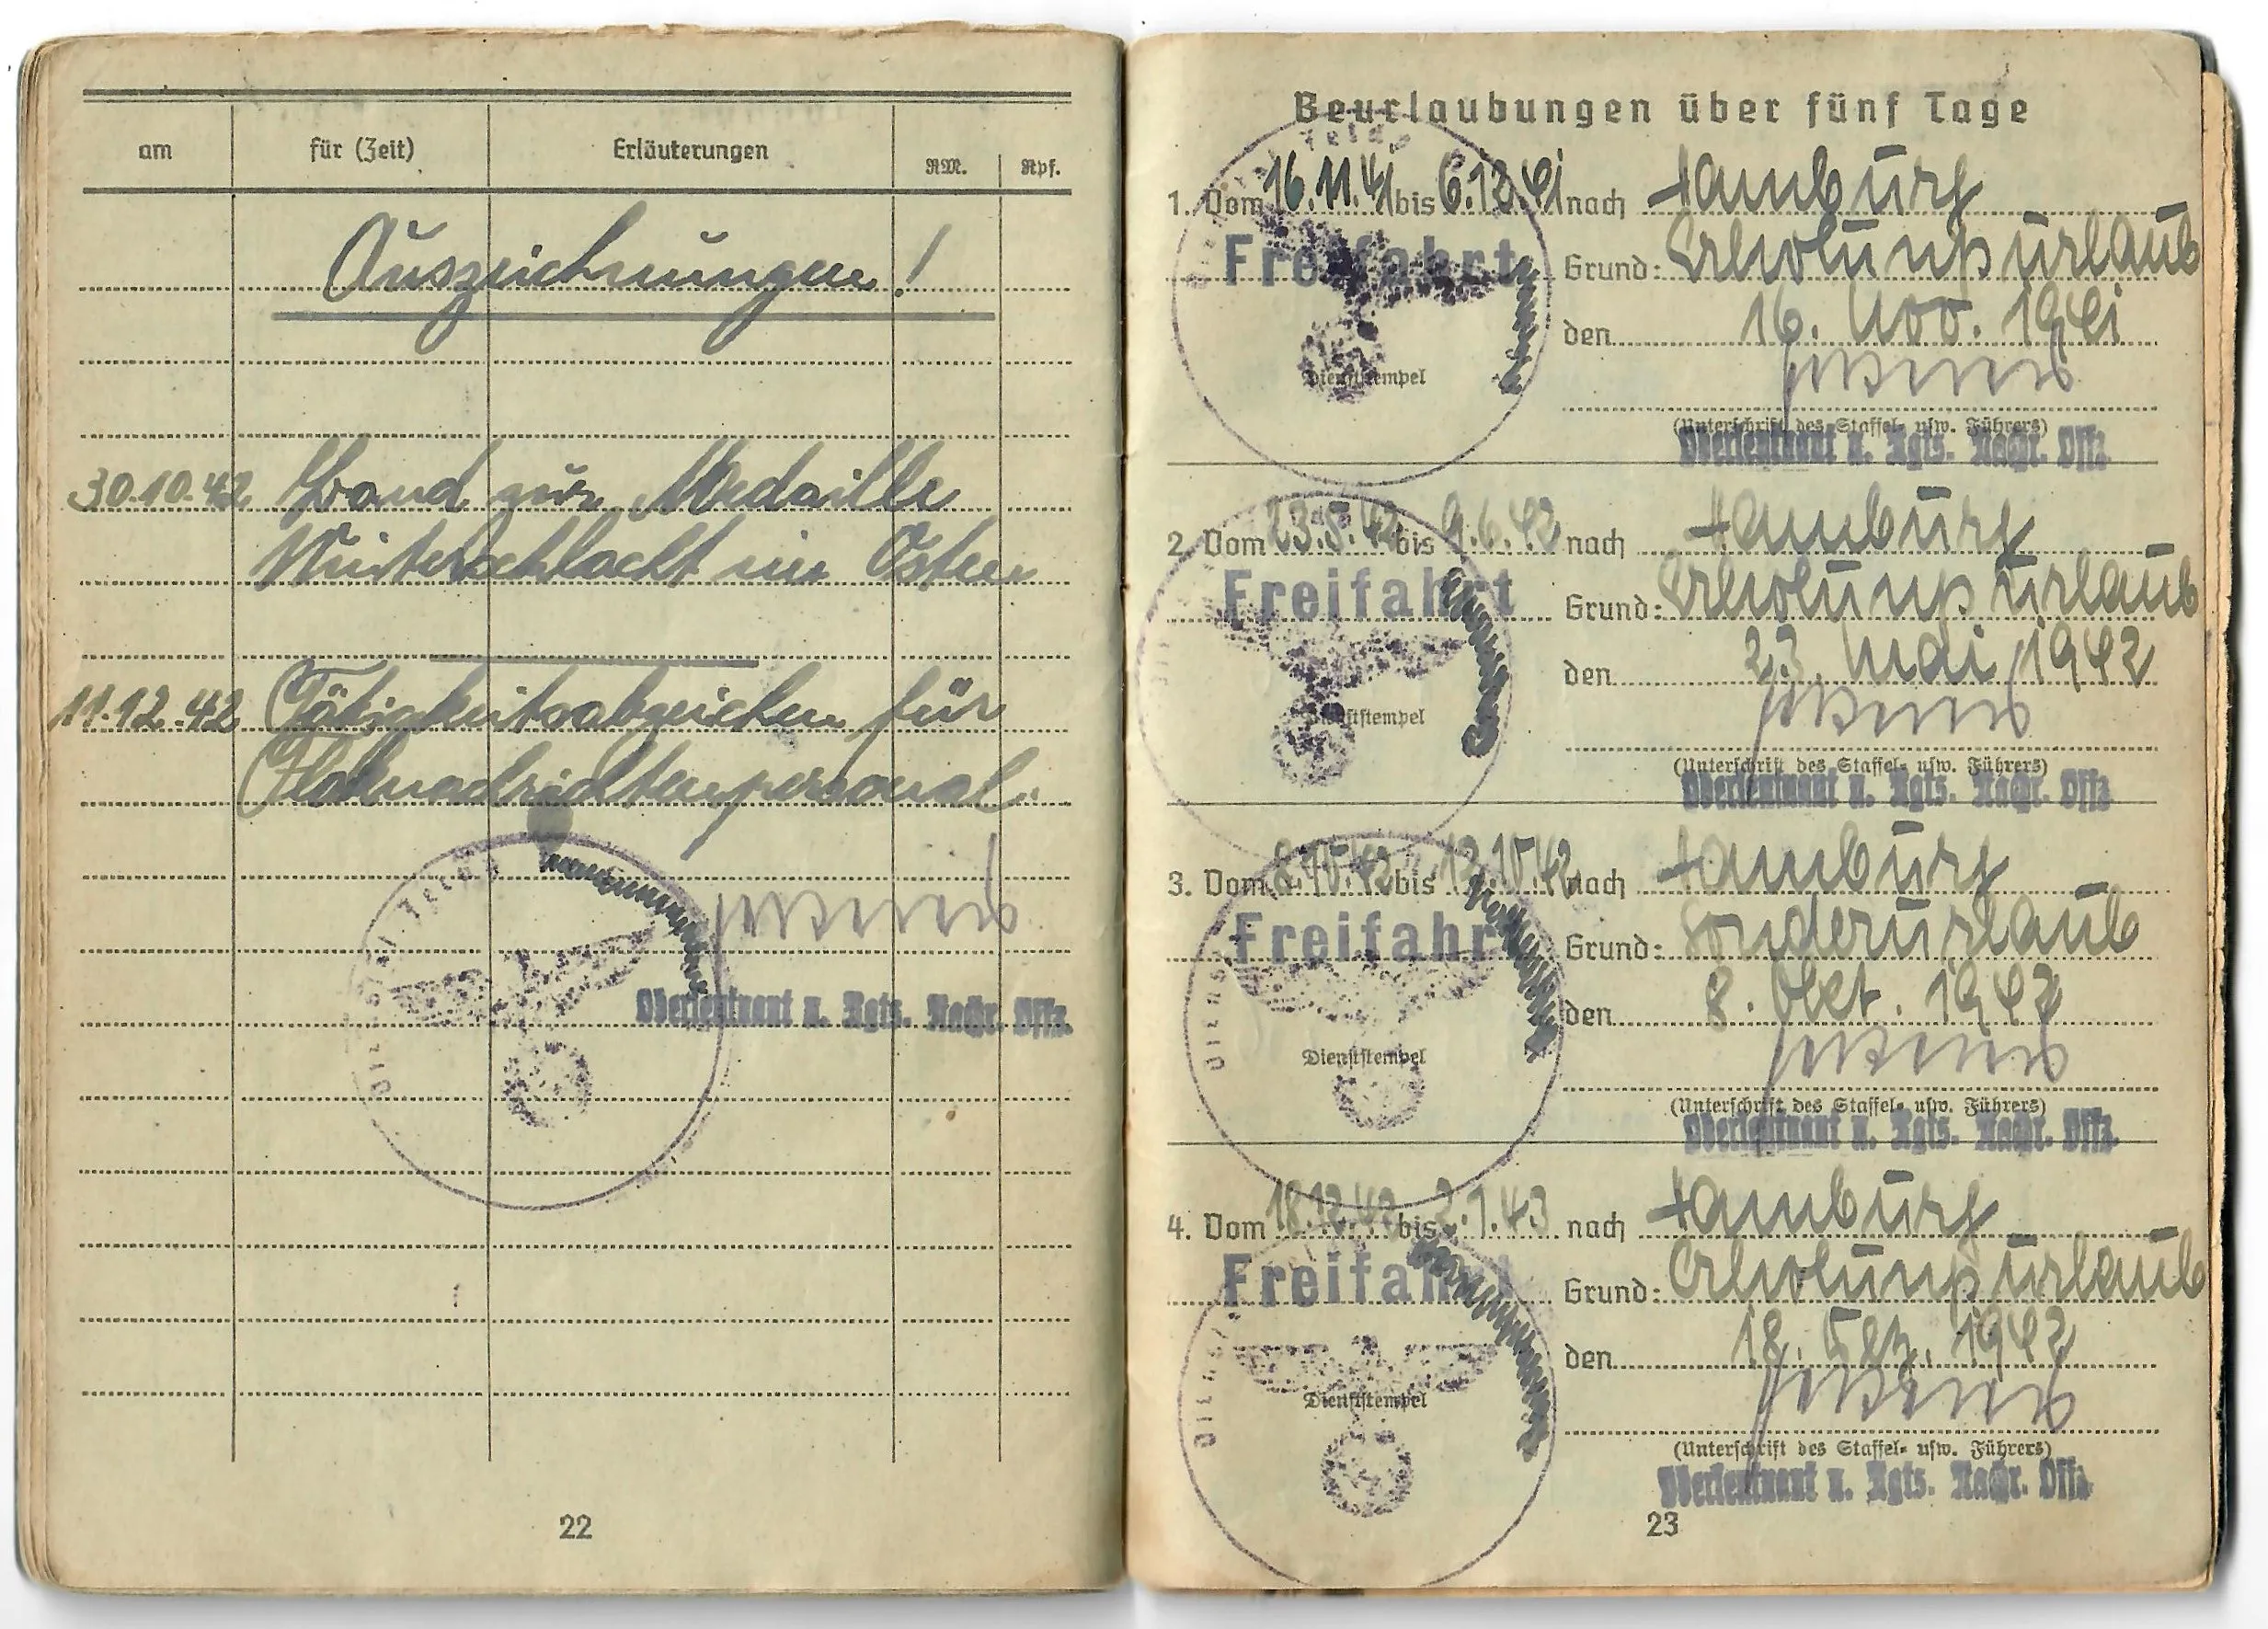 am für (Zeit) Erläuterungen RM. Rpf.
Auszeichnungen!
30.10.42 Band zur Medaille
Winterschlacht im Osten
11.12.42 Tätigkeitsabzeichen für
Flaknachrichtenpersonal.
Oberleutnant u. Rgts. Nachr. Offz.
22
Beurlaubungen über fünf Tage
1. Vom 16.11.41 bis 6.12.41 nach Hamburg
Freifahrt Grund: Erholungsurlaub
den 16. Nov. 1941
Dienststempel
(Unterschrift des Staffel- usw. Führers)
Oberleutnant u. Rgts. Nachr. Offz.
2. Vom 23.5.42 bis 9.6.42 nach Hamburg
Freifahrt Grund: Erholungsurlaub
den 23. Mai 1942
Dienststempel
(Unterschrift des Staffel- usw. Führers)
Oberleutnant u. Rgts. Nachr. Offz.
3. Vom 8.10.42 bis 12.10.42 nach Hamburg
Freifahrt Grund: Sonderurlaub
den 8. Okt. 1942
Dienststempel
(Unterschrift des Staffel- usw. Führers)
Oberleutnant u. Rgts. Nachr. Offz.
4. Vom 18.12.42 bis 2.1.43 nach Hamburg
Freifahrt Grund: Erholungsurlaub
den 18. Dez. 1942
Dienststempel
(Unterschrift des Staffel- usw. Führers)
Oberleutnant u. Rgts. Nachr. Offz.
23